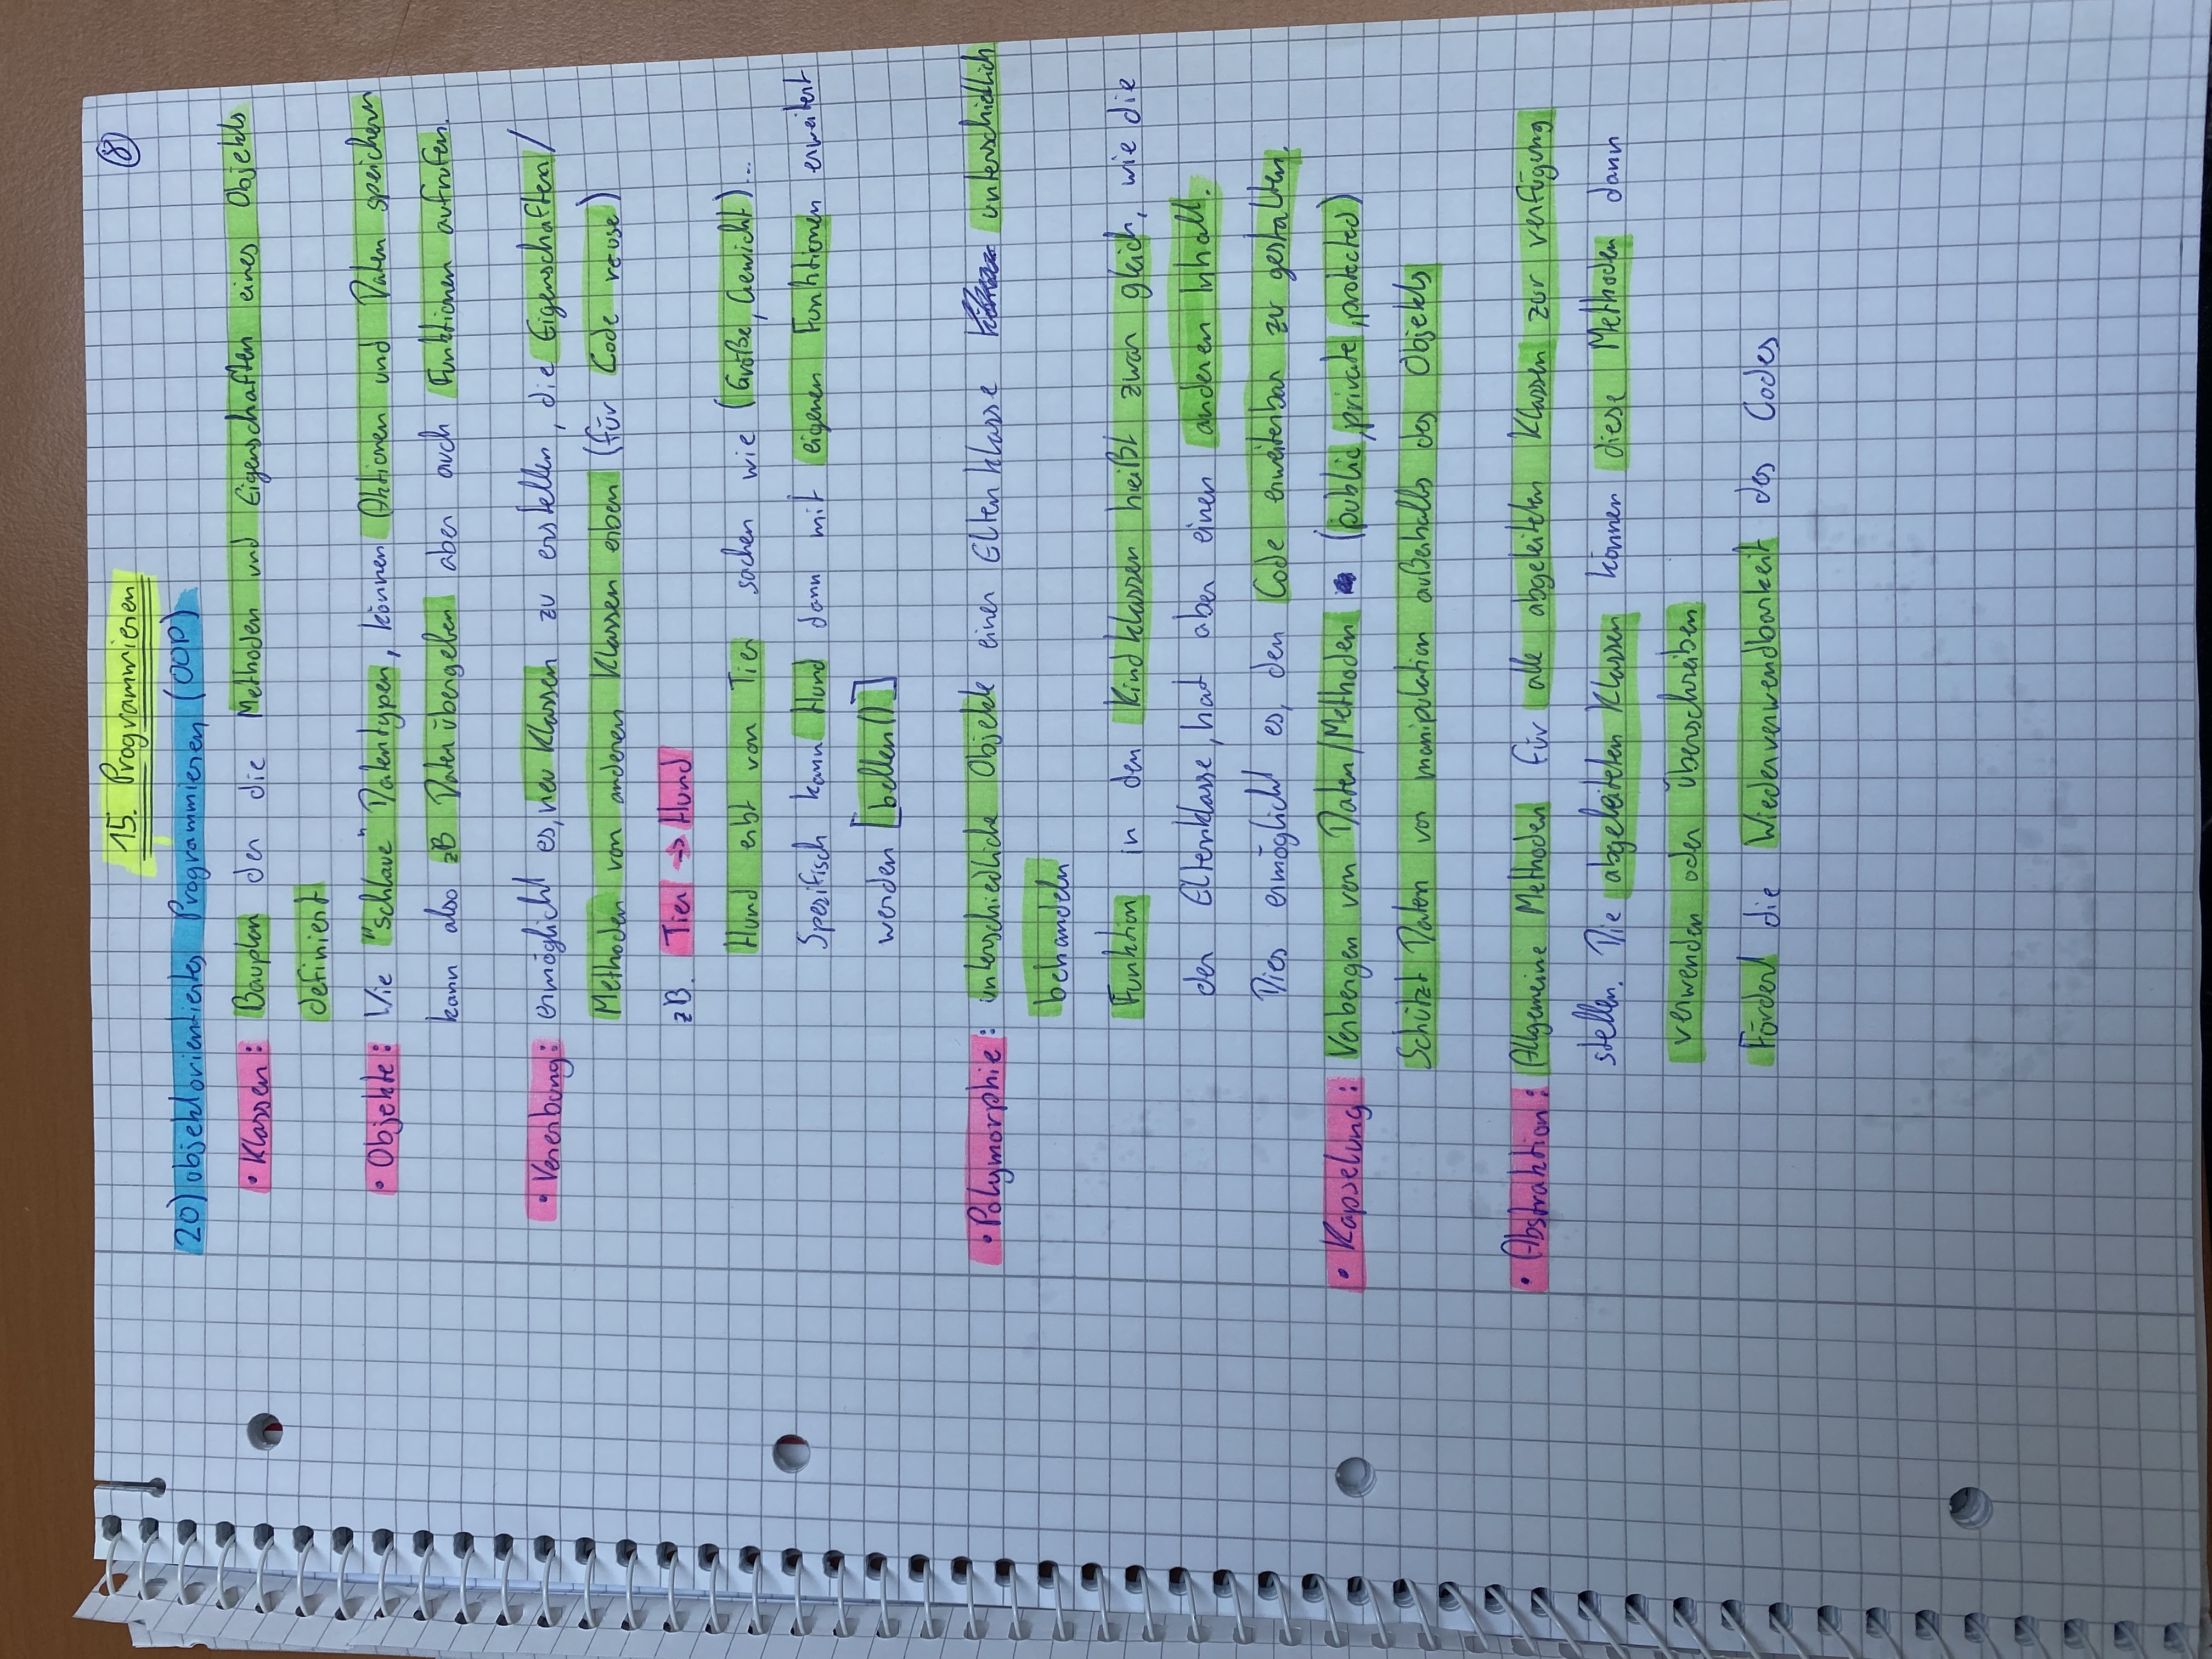 15. Programmieren
8
20) objektorientiertes Programmieren (OOP)
• Klassen: Bauplan der die Methoden und Eigenschaften eines Objekts
definiert
• Objekte: Wie "schlaue" Datentypen, können Aktionen und Daten speichern
kann also zB Daten übergeben aber auch Funktionen aufrufen.
• Vererbung: ermöglicht es, neu Klassen zu erstellen, die Eigenschaften/
Methoden von anderen Klassen erben (für Code reuse)
zB. Tier -> Hund
Hund erbt von Tier sachen wie (Größe, Gewicht)...
Spezifisch kann Hund dann mit eigenen Funktionen erweitert
werden [bellen()]
• Polymorphie: unterschiedliche Objekte einer Elternklasse unterschiedlich
behandeln
Funktion in den Kindklassen heißt zwar gleich, wie die
der Elternklasse, hat aber einen anderen Inhalt.
Dies ermöglicht es, den Code erweiterbar zu gestalten.
• Kapselung: Verbergen von Daten/Methoden (public, private, protected)
Schützt Daten vor manipulation außerhalb des Objekts
• Abstraktion: Allgemeine Methoden für alle abgeleiteten Klassen zur verfügung
stellen. Die abgeleiteten Klassen können diese Methoden dann
verwenden oder überschreiben
Fördert die Wiederverwendbarkeit des Codes